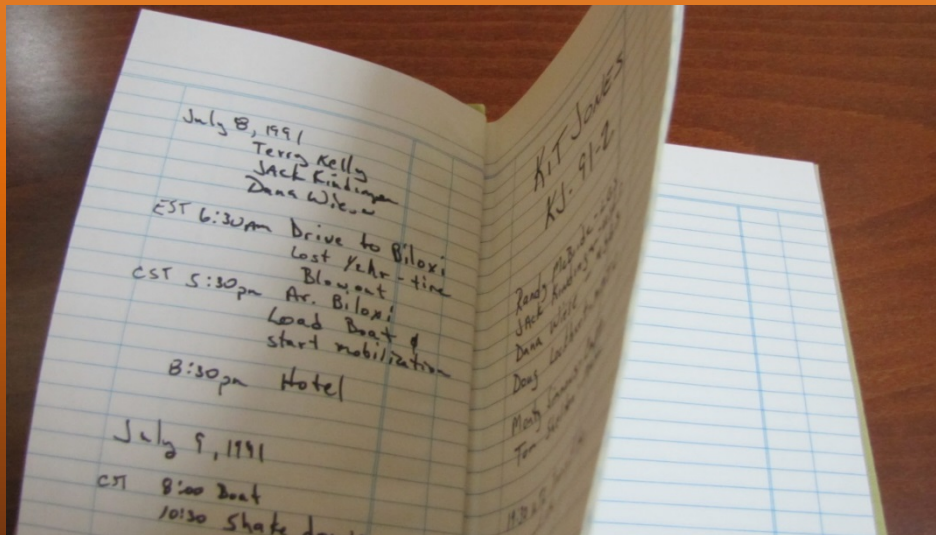 July 8, 1991
Terry Kelly
JAck Kindinger
Dana Wiese
EST 6:30am Drive to Biloxi
Lost ½hr - tire
Blowout
CST 5:30pm Ar. Biloxi
Load Boat &
start mobilization
8:30pm Hotel
July 9, 1991
CST 8:00 Boat
10:30 Shake
KIT JONES
KJ-91-2
Randy
JAck
Dana Wiese
Doug
Monty
Tom